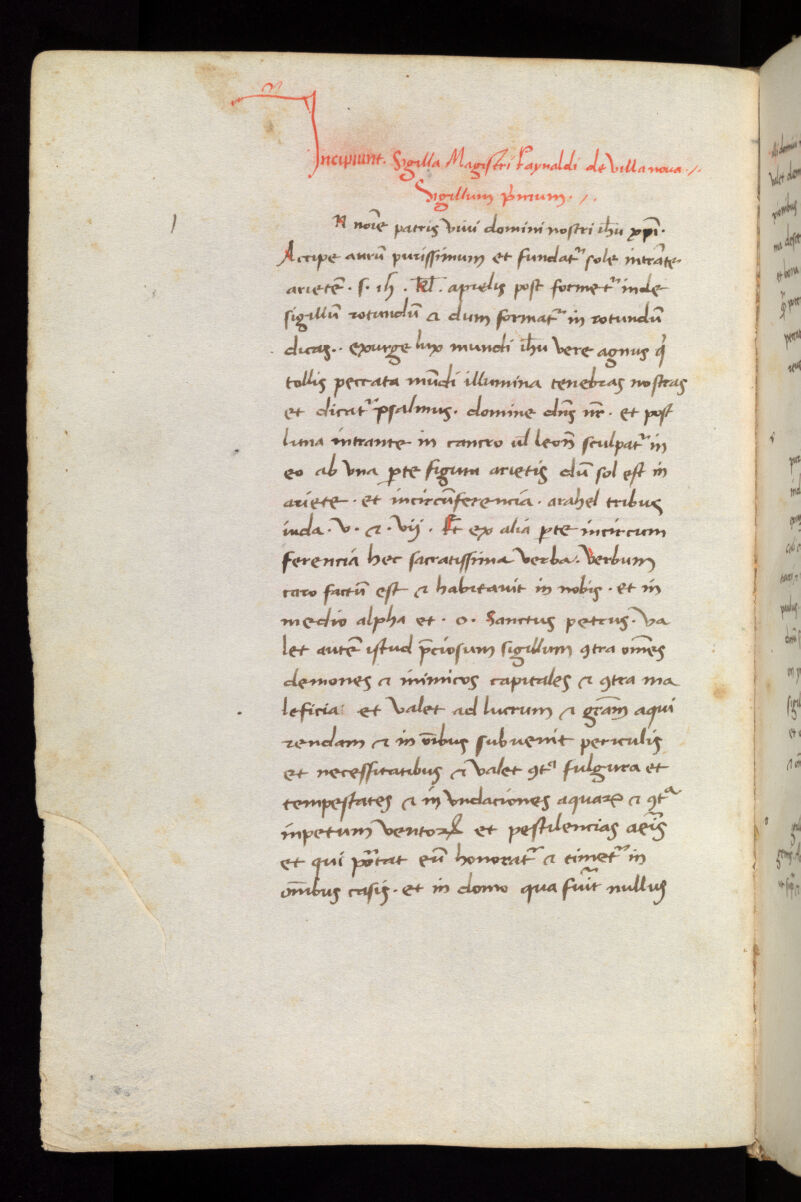 Incipiunt. Sigilla Magistri Raynaldi de Villa nova ./.
Sigillum p̄rimum. /.
N noīe patris vivi domini nostri ihū xp̄i.
Accipe aurū purissimum et fundatʳ sole intrāte
arietē . s . iɧ . kl̄ . aprelis post formetʳ inde
sigillū rotundū & dum formatʳ in rotundū
dicas.. exurge lux mundi ihū vere agnus q̇
tollis peccata mūdi illumina tenebras nostras
et dicatʳ psalmus. domine dn̄s nr̄. et post
luna intrante in cancro ul̄ leon̄ sculpatʳ in
eo ab una ꝑte figura arietis dū sol est in
ariete . et incircūferencia . arahel tribus
iuda . v . & . vij . Et ex alia ꝑte incircum
ferencia hec sacratissima verba. Verbum
caro factū est & habitavit in nobis . et in
medio alpha et . o . Sanctus petrus. va
let autē istud p̄ciosum sigillum ꝯtra om̄es
demones & inimicos capitales & ꝯtra ma
leficia: et valet ad lucrum & gr̄am aqui
rendam & in oībus subvenit periculis
et necessitatibus & valet ꝯtᵃ fulgura et
tempestates & in undaciones aquaꝝ & ꝯtᵃ
inpetum ventoꝝ et pestilencias aeīs
et qui portat eū honoratʳ & timetʳ in
om̄ibus casis. et in domo qua fuīt nullus